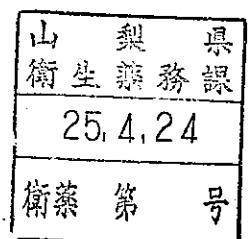 山梨県
衛生薬務課
25.4.24
衛薬第 号